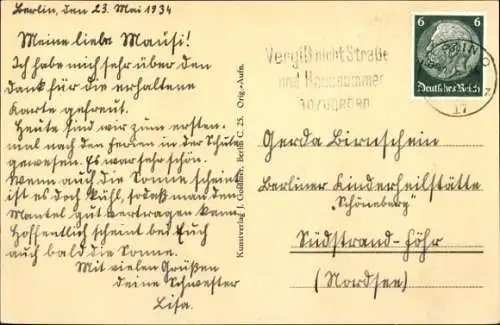 Berlin, den 23. Mai 1934
Meine liebe Mausi!
Ich habe mich sehr über den
Dank für die erhaltene
Karte gefreut.
Heute sind wir zum ersten-
mal nach den Ferien in der Schule
gewesen. Es war sehr schön.
Wenn auch die Sonne scheint
ist es doch kühl, sodaß man den
Mantel gut vertragen kann.
Hoffentlich scheint bei Euch
auch bald die Sonne.
Mit vielen Grüßen
deine Schwester
Lisa.
Kunstverlag J. Goldiner, Berlin C. 25. Orig.-Aufn.
Vergiß nicht Straße
und Hausnummer
anzugeben
6 6
Deutsches Reich
17
Gerda Birnschein
Berliner Kinderheilstätte
„Schöneberg"
Südstrand-Föhr
(Nordsee)